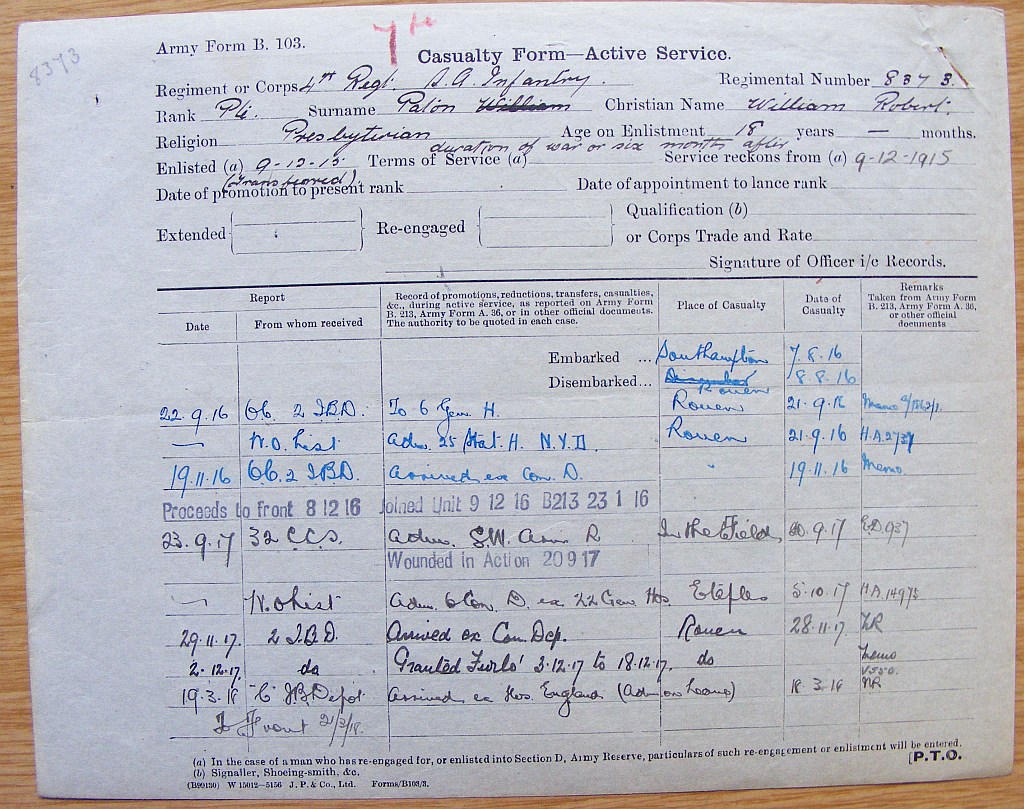 8373
Army Form B. 103.
Casualty Form—Active Service.
Regiment or Corps 4th Regt. S.A. Infantry. Regimental Number 8373.
Rank Pte. Surname Paton William Christian Name William Robert.
Religion Presbyterian Age on Enlistment 18 years — months.
duration of war or six months after
Enlisted (a) 9-12-15 Terms of Service (a) Service reckons from (a) 9-12-1915
Date of promotion to present rank Date of appointment to lance rank
Extended Re-engaged Qualification (b)
or Corps Trade and Rate
Signature of Officer i/c Records.
Report Record of promotions, reductions, transfers, casualties, &c., during active service, as reported on Army Form B. 213, Army Form A. 36, or in other official documents. The authority to be quoted in each case. Place of Casualty Date of Casualty Remarks Taken from Army Form B. 213, Army Form A. 36, or other official documents
Date From whom received
Embarked ... Southampton 7.8.16
Disembarked... Rouen 8.8.16
22.9.16 Ob. 2 I.B.D. To 6 Gen. H. Rouen 21.9.16 Memo
— W.O. List Adm. 25 Stat. H. N.Y.D. Rouen 21.9.16 H.A.2737
19.11.16 Ob. 2 I.B.D. Arrived ex Con. D. " 19.11.16 Memo
Proceeds to front 8 12 16 Joined Unit 9 12 16 B213 23 1 16
23.9.17 32 C.C.S. Adm. S.W. Arm R In the Field 20.9.17 E.D.937
Wounded in Action 20 9 17
— W.O List Adm. 6 Con. D. ex 22 Gen. Hos. Etaples 5.10.17 H.A.14975
29.11.17. 2 I.B.D. Arrived ex Con. Dep. Rouen 28.11.17 NR
2.12.17. do Granted Furlo' 3.12.17 to 18.12.17. do Memo
19.3.18 "C" I.B. Depot Arrived ex Hos. England (Adm. on Leave) 18.3.18 NR
To Front 21/3/18.
(a) In the case of a man who has re-engaged for, or enlisted into Section D, Army Reserve, particulars of such re-engagement or enlistment will be entered.
(b) Signaller, Shoeing-smith, &c.
[P.T.O.
(B99130) W 15012—5156 J. P. & Co., Ltd. Forms/B103/3.